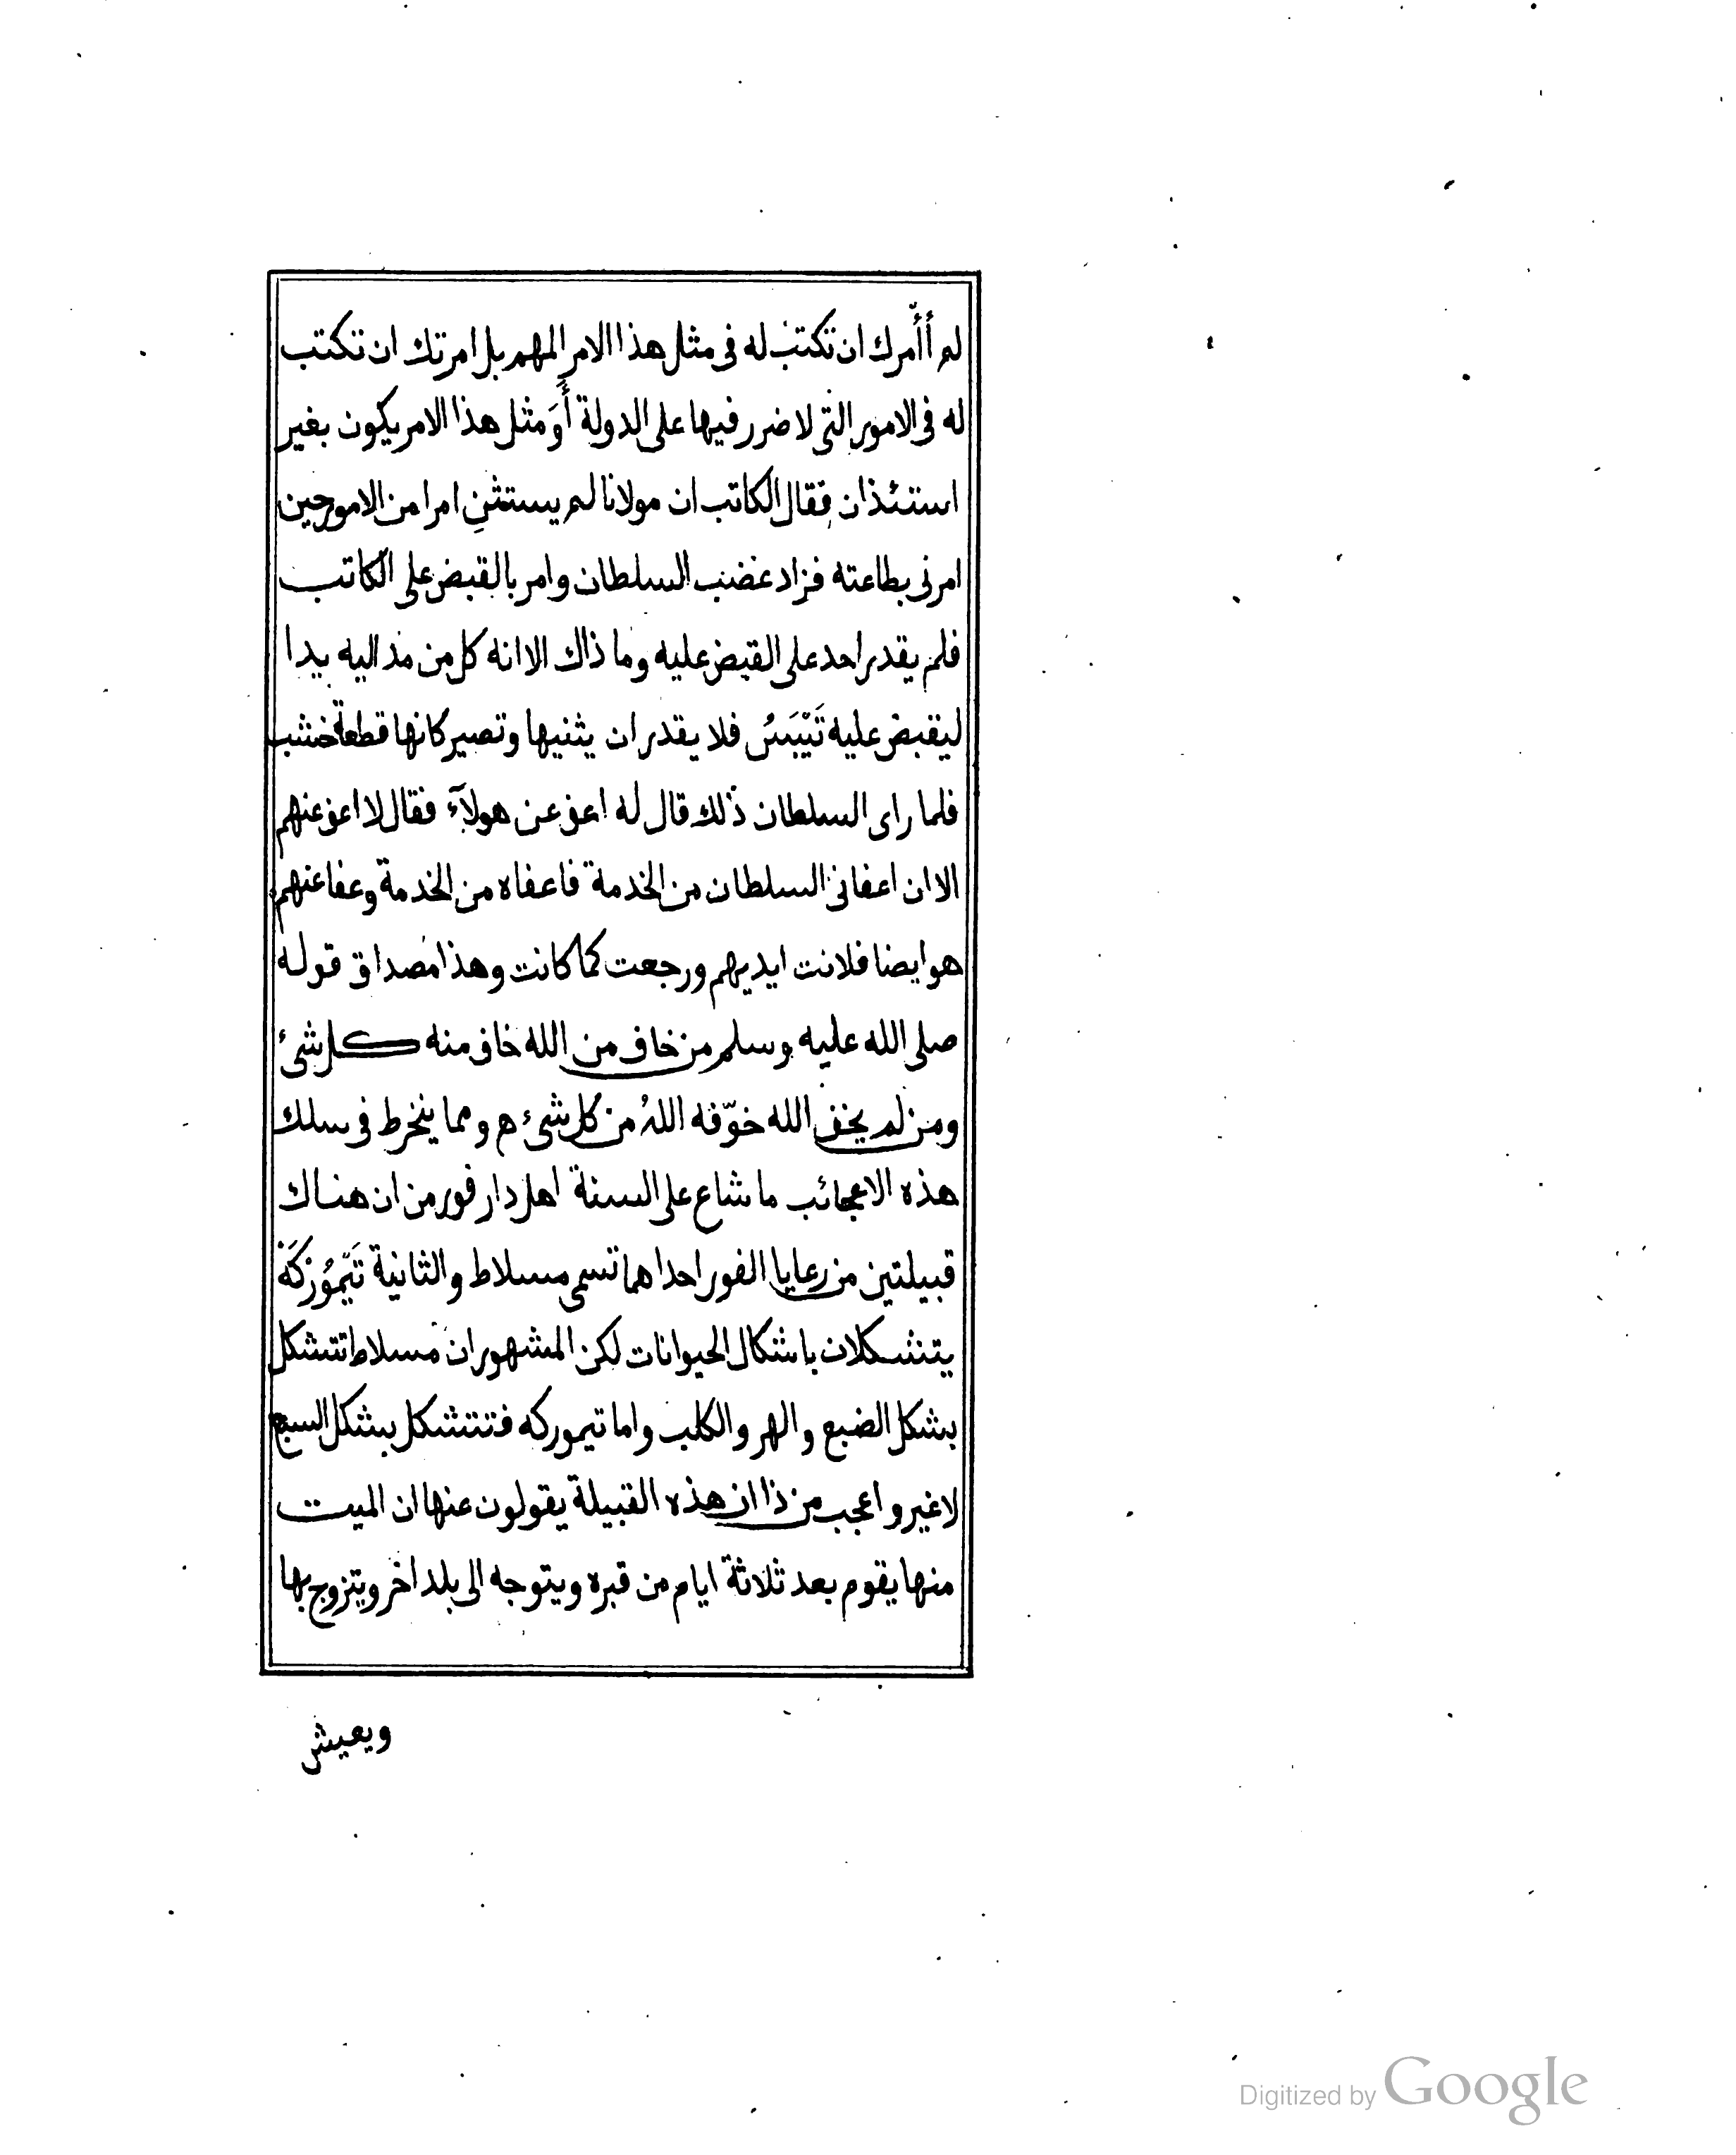 لم أأمّرك ان تكتب له فى مثل هذا الامر المهم بل امرتك ان تكتب
له فى الامور التى لا ضرر فيها على الدولة أَوَمثل هذا الامر يكون بغير
استئذان فقال الكاتب ان مولانا لم يستثنِ امرا من الامور حين
امرنى بطاعته فزاد غضب السلطان وامر بالقبض على الكاتب
فلم يقدر احد على القبض عليه وما ذاك الا انه كل من مد اليه يدا
ليقبض عليه تَيْبَسُ فلا يقدر ان يثنيها وتصير كانها قطعة خشب
فلما راى السلطان ذلك قال له اعف عن هولآء فقال لا اعف عنهم
الا ان اعفانى السلطان من الخدمة فاعفاه من الخدمة وعفا عنهم
هو ايضا فلانت ايديهم ورجعت كما كانت وهذا مصداق قوله
صلى الله عليه وسلم من خاف من الله خاف منه كل شئ
ومن لم يخف الله خوّفه اللهُ من كل شئ ه ومما ينخرط فى سلك
هذه الاعجائب ما شاع على السنة اهل دار فور من ان هناك
قبيلتين من رعايا الفور احداهما تسمى مسلاط والثانية تَيْمُوْرْكَهْ
يتشكلان باشكال الحيوانات لكن المشهور ان مسلاط تتشكل
بشكل الضبع والهر والكلب واما تيموركه فتتشكل بشكل السبع
لا غير واعجب من ذا ان هذه القبيلة يقولون عنها ان الميت
منها يقوم بعد ثلاثة ايام من قبره ويتوجه الى بلد اخر ويتزوج بها
ويعيش
Digitized by Google